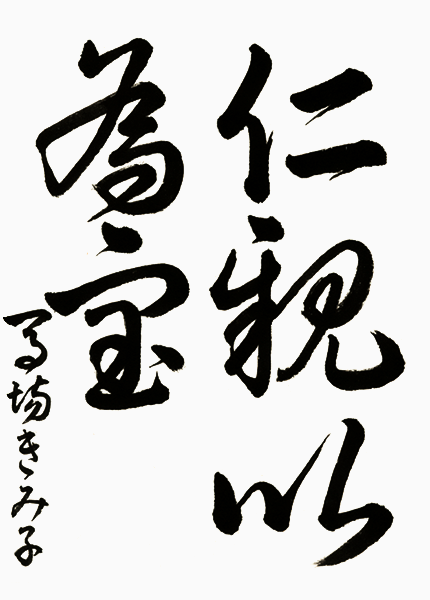 仁親以
為宝
馬場きみ子